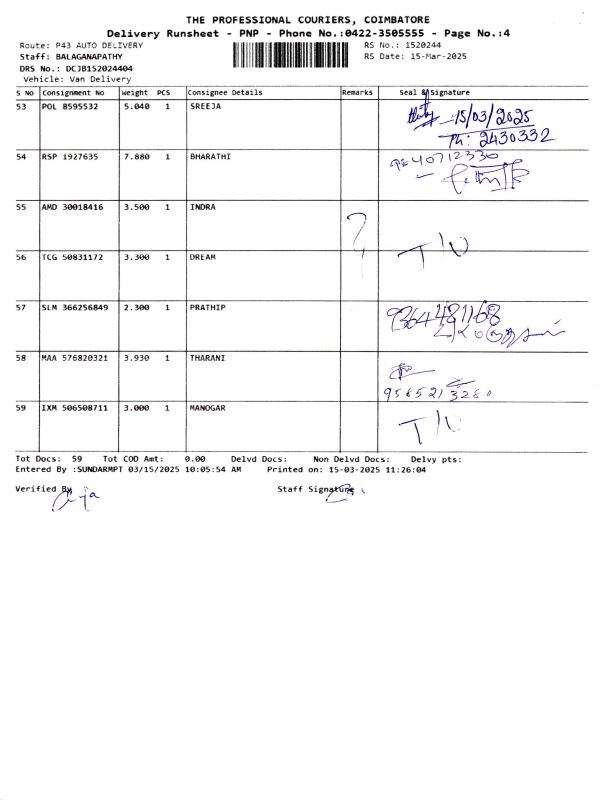 THE PROFESSIONAL COURIERS, COIMBATORE
Delivery Runsheet - PNP - Phone No.:0422-3505555 - Page No.:4
Route: P43 AUTO DELIVERY RS No.: 1520244
Staff: BALAGANAPATHY RS Date: 15-Mar-2025
DRS No.: DCJB152024404
Vehicle: Van Delivery
S No Consignment No Weight PCS Consignee Details Remarks Seal & Signature
53 POL 8595532 5.040 1 SREEJA 15/03/2025
Ph: 2430332
54 RSP 1927635 7.880 1 BHARATHI
55 AMD 30018416 3.500 1 INDRA
T/O
56 TCG 50831172 3.300 1 DREAM
57 SLM 366256849 2.300 1 PRATHIP 9364481168
58 MAA 576820321 3.930 1 THARANI
9565213280
59 IXM 506508711 3.000 1 MANOGAR T/O
Tot Docs: 59 Tot COD Amt: 0.00 Delvd Docs: Non Delvd Docs: Delvy pts:
Entered By :SUNDARMPT 03/15/2025 10:05:54 AM Printed on: 15-03-2025 11:26:04
Verified By Staff Signature